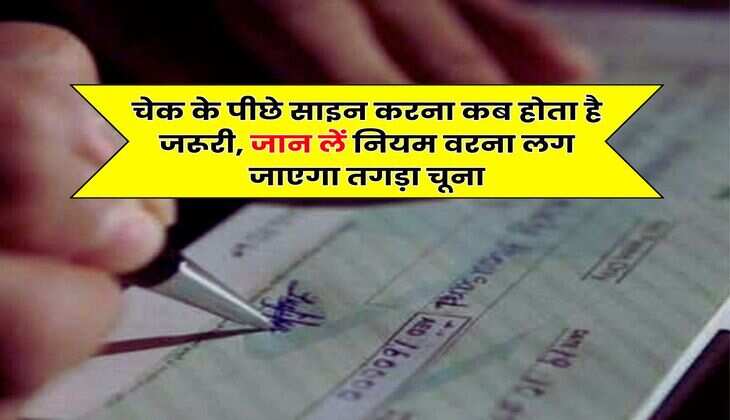 चेक के पीछे साइन करना कब होता है
जरूरी, जान लें नियम वरना लग
जाएगा तगड़ा चूना